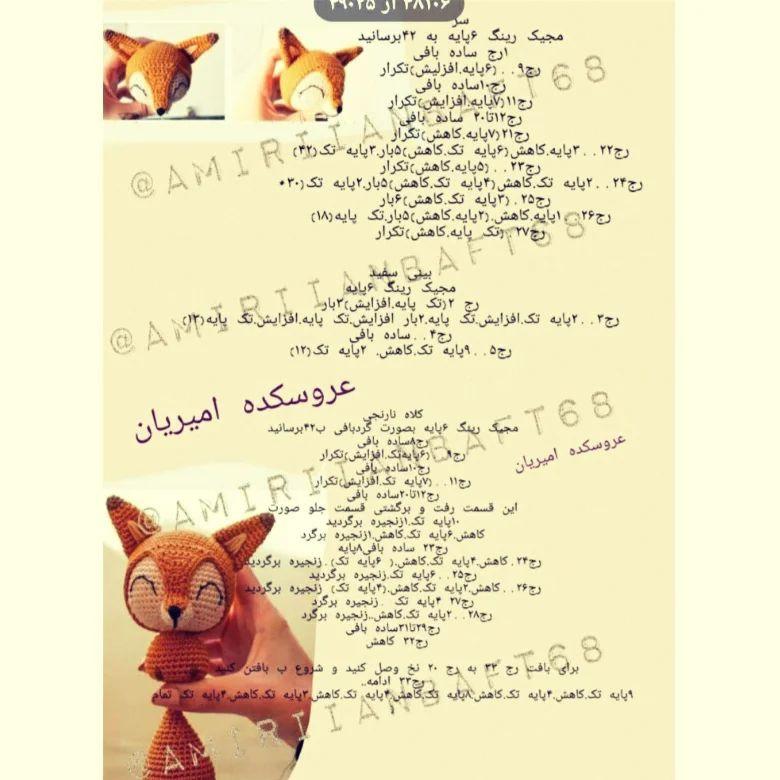 ۳۸۱۰۶ از ۳۹۰۲۵
سر
مجیک رینگ ۶پایه به ۴۲برسانید
۱رج ساده بافی
رج۹. . (۶پایه.افزلیش)تکرار
رج۱۰ساده بافی
رج۱۱(۷پایه.افزایش)تکرار
رج۱۲تا۲۰ ساده بافی
رج۲۱(۷پایه.کاهش)تکرار
رج۲۲. . ۳پایه.کاهش(۶پایه تک.کاهش)۵بار.۳پایه تک(۴۲)
رج۲۳. . (۵پایه.کاهش)تکرار
رج۲۴. . ۲پایه تک.کاهش(۴پایه تک.کاهش)۵بار.۲پایه تک(۳۰*
رج۲۵. (۳پایه تک.کاهش)۶بار
رج۲۶. . ۱پایه.کاهش.(۲پایه.کاهش)۵بار.تک پایه(۱۸)
رج۲۷. (تک پایه.کاهش)تکرار
بینی سفید
مجیک رینگ ۶پایه
رج ۲(تک پایه.افزایش)۳بار
رج۳. . ۲پایه تک.افزایش.تک پایه.۲بار افزایش.تک پایه.افزایش.تک پایه(۱۳)
رج۴. . ساده بافی
رج۵. . ۹پایه تک.کاهش. ۲پایه تک(۱۲)
عروسکده امیریان
کلاه نارنجی
مجیک رینگ ۶پایه بصورت گردبافی ب۴۲برسانید
رج۸ساده بافی
رج۹. (۶پایه‌تک.افزایش)تکرار
رج۱۰ساده بافی
رج۱۱. . (۷پایه تک.افزایش)تکرار
رج۱۲تا۲۰ساده بافی
عروسکده امیریان
این قسمت رفت و برگشتی قسمت جلو صورت
۱۰پایه تک.۱زنجیره برگردید
کاهش.۶پایه تک.کاهش.۱زنجیره برگرد
رج۲۳ ساده بافی۸پایه
رج۲۴.کاهش.۴پایه تک.کاهش.( ۶پایه تک). زنجیره برگردید
رج۲۵. . ۶پایه تک.زنجیره برگردید
رج۲۶. . کاهش.۲پایه تک.کاهش.(۴پایه تک) زنجیره برگردید
رج۲۷ ۴پایه تک . زنجیره برگرد
رج۲۸. . ۲پایه تک.کاهش..زنجیره برگرد
رج۲۹تا۳۱ساده بافی
رج۳۲ کاهش
برای بافت رج ۳۳ به رج ۲۰ نخ وصل کنید و شروع ب بافتن کنید
رج۳۳ ادامه..
۹پایه تک.کاهش.۴پایه تک.کاهش.۸پایه تک.کاهش.۴پایه تک.کاهش.۳پایه تک.کاهش.۴پایه تک تمام
@AMIRIIANBAFT68
@AMIRIIANBAFT68
@AMIRIIANBAFT68
@AMIRIIANBAFT68